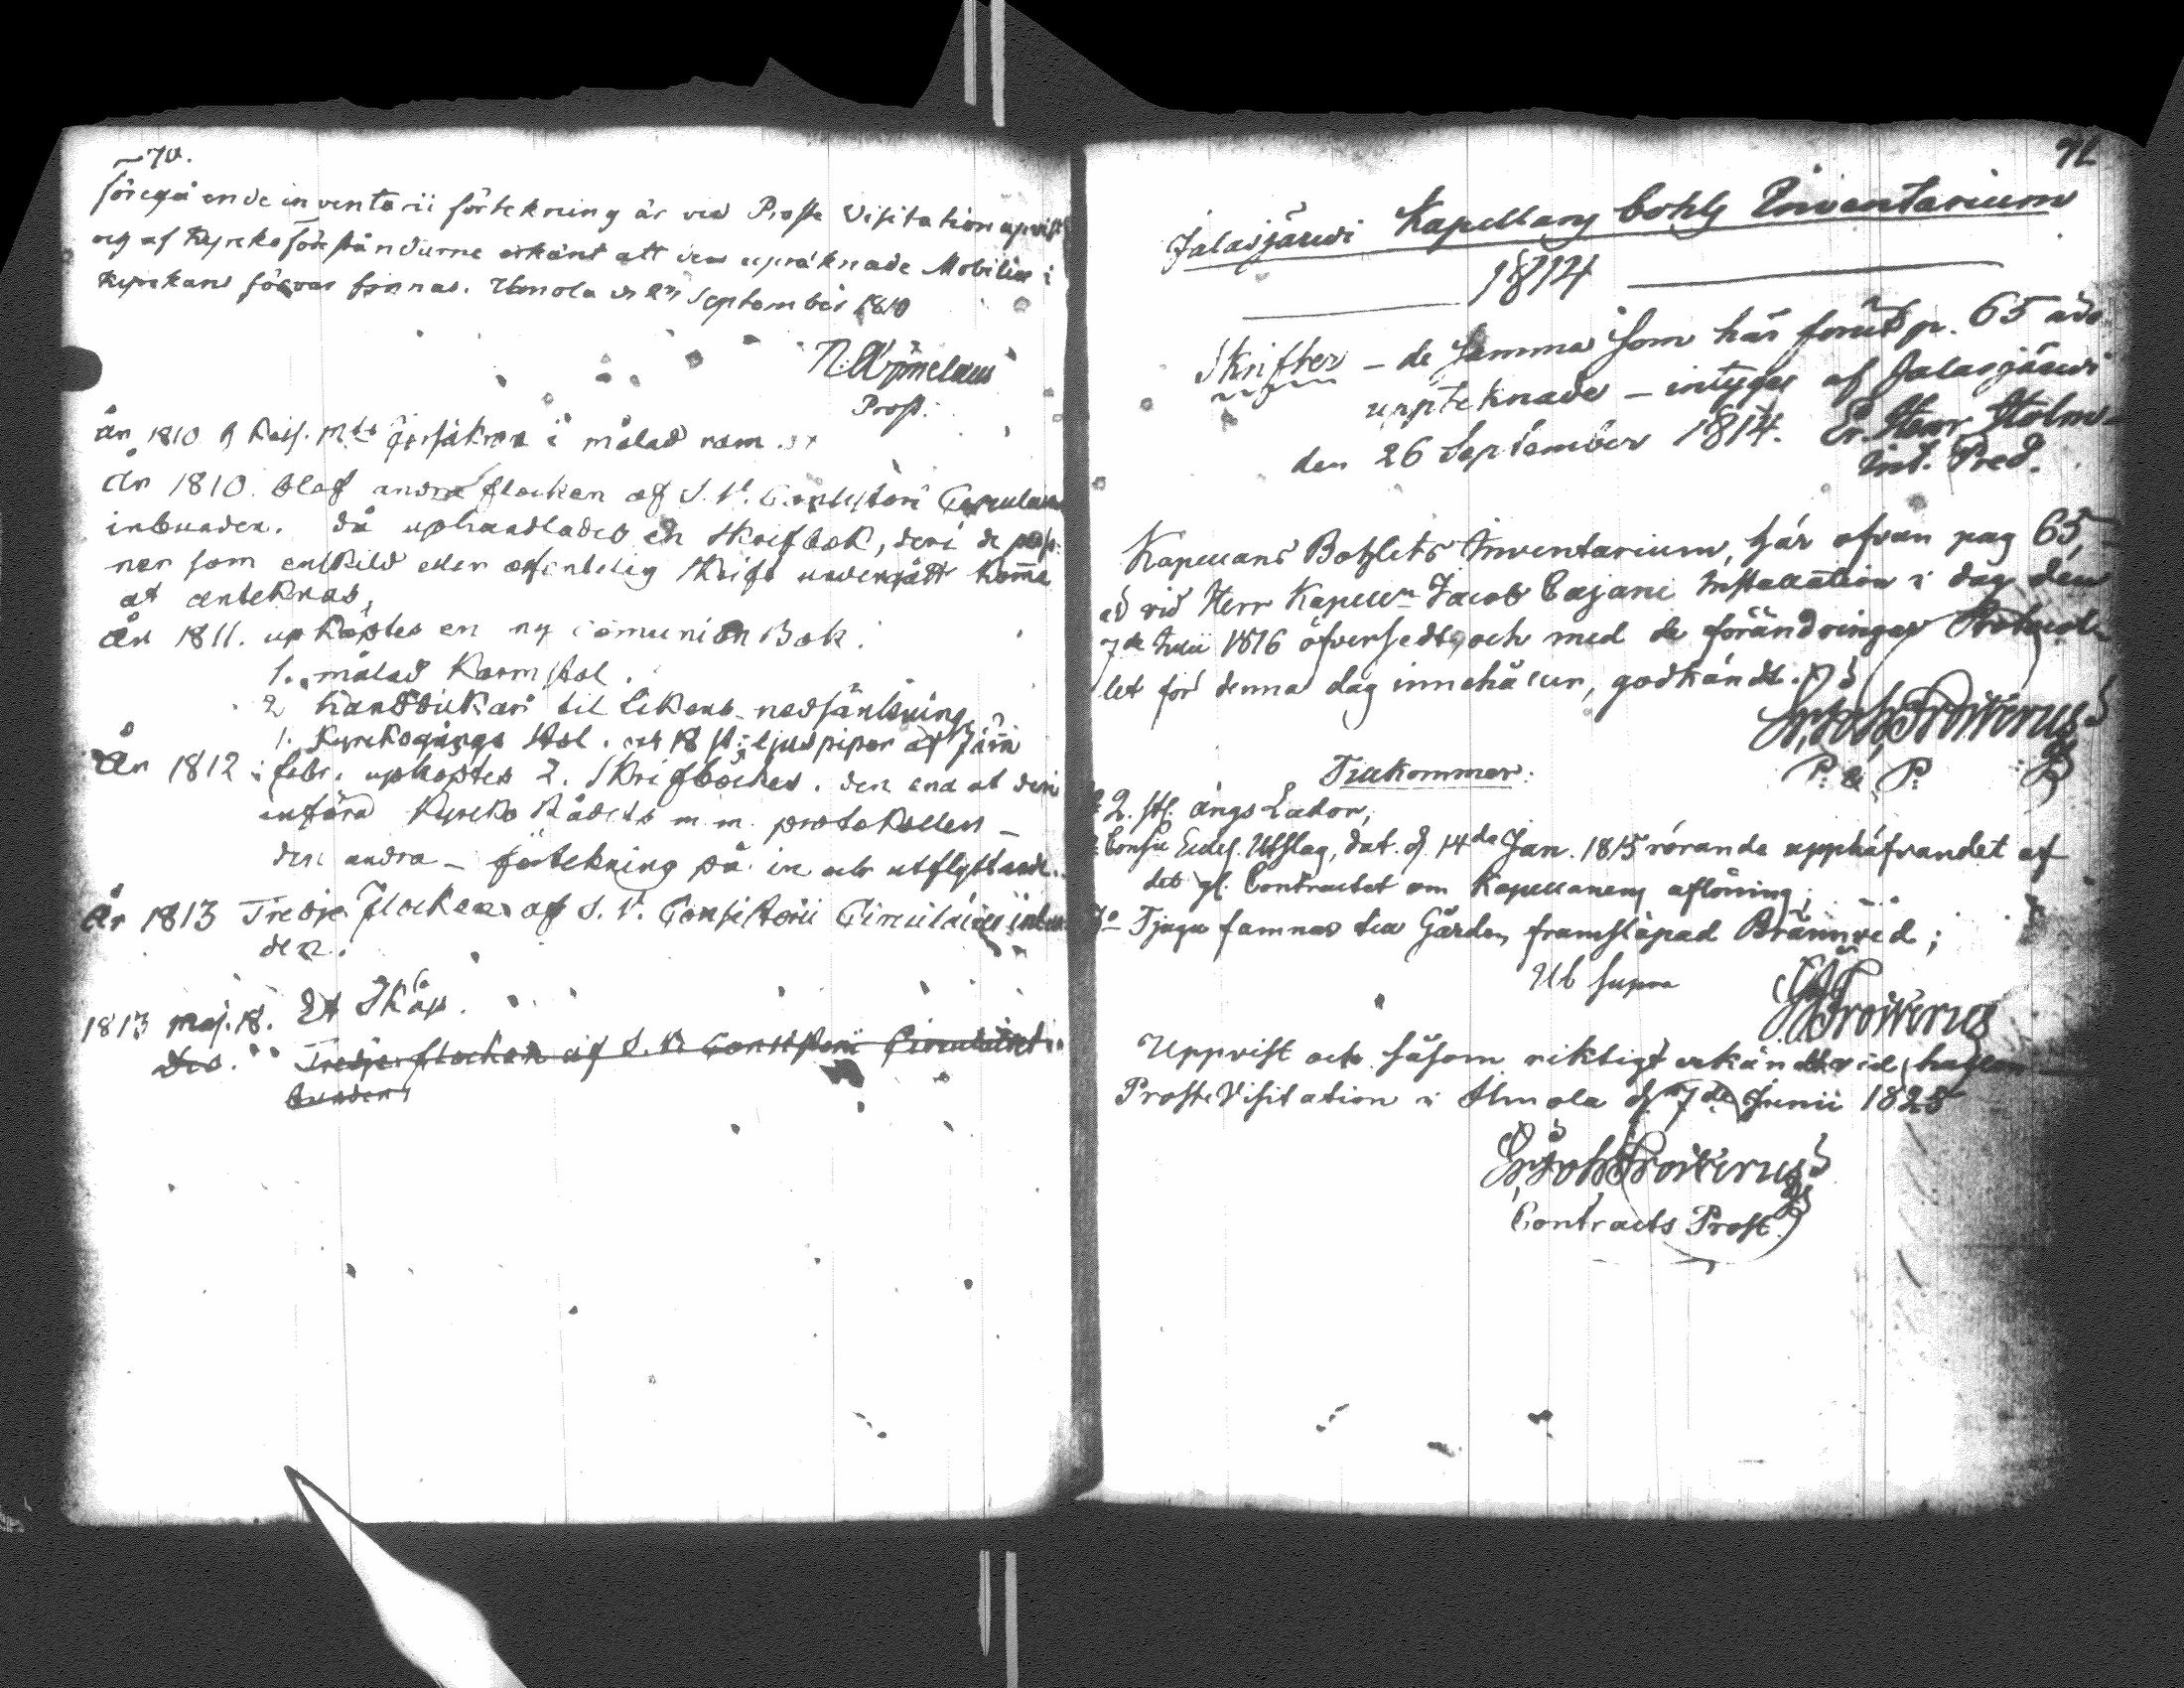 70.
föregå ende inventarii förtekning är vid Proste Visitation upvist
och af Kyrkoföreståndarne erkänt att den upräknade Mobilier i
Kyrkans förvar finnas. Ilmola d. September 1810
Prost.
år 1810 Kejs. Mts försäkran i målad ram.
År 1810. blef andra flocken af S. V. Consistorii Circulairer
inbunden. då uphandlades en Skrifbok, deri de perso-
ner som enskild eller offentelig Skrift undergått komma
at anteknas,
År 1811. upköptes en ny communion Bok.
1. målad Karm stol.
2 handdukar til likens nedsänkning
1. Kyrkogångs stol. och 18 st: ljuspipor af Järn
År 1812 i febr. upköptes 2. Skrifböcker. den ena at deri
införa Kyrko Rådets m. m. protokoller –
den andra – förtekning på in och utflyttande.
År 1813 Tredje Flocken af S. V. Consistorii Circulairer inbun
den.
1813 Maj. 18. Et Skåp.
dto. Tredje flocken af S. V. Consistorii Circulairer in
bunden
Jalasjärvi Kapellans bohls Inventarium
1814
Skrifter – de samma som här förut p. 65
uppteknade – intygas af Jalasjärvi
den 26 September 1814. Er. Henr Holm
Kapellans Bohlets Inventarium, här ofvan pag 65,
vid Herr Kapelln Jacob Cajani Installation i dag den
7de Julii 1816 öfversedt, och med de förändringar Protocol
let för denna dag innehåller, godkändt.
Er. Joh. Frosterus
P. & P.
Tillkommer:
2. st. ängs Lador,
Consist. Eccles. Utslag, dat. d. 14de Jan. 1815 rörande upphäfvandet af
det gl. Contractet om Kapellanens aflöning;
Tjugu famnar till Gården framsläpad Brännved;
Ut supra
Frosterus
Uppvist och såsom riktigt erkändt vid hållen
Proste Visitation i Ilmola d. 7de Junii 1825
Er. Joh. Frosterus
Contracts Prost.